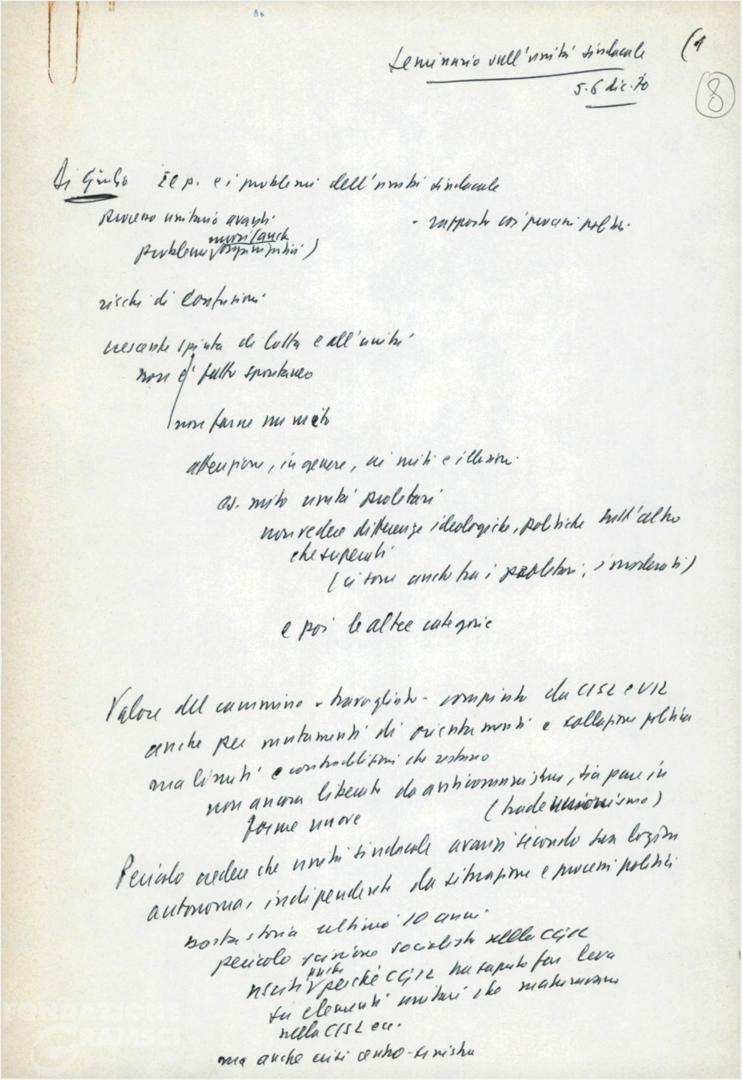 (1
Seminario sull'unità sindacale
5-6 dic. 70
8
Di Giulio Il p. e i problemi dell'unità sindacale
processo unitario avanti - rapporto coi processi politici
nuovi (anche
problemi organizzativi)
rischi di confusioni
crescente spinta di lotta e all'unità
non è fatto spontaneo
non farne un mito
attenzione, in genere, ai miti e illusioni
es. mito unità proletari
non vedere differenze ideologiche, politiche tutt'altro
che superati
(ci sono anche tra i proletari, i moderati)
e poi le altre categorie
Valore del cammino - travagliato - compiuto da CISL e UIL
anche per mutamenti di orientamenti e collazione politica
ma limiti e contraddizioni che restano
non ancora liberate da anticomunismo, sia pure in
forme nuove (tradeunionismo)
Pericolo credere che unità sindacale avanzi secondo sua logica
autonoma, indipendente da situazione e processi politici
nostra storia ultimi 10 anni.
pericolo scissione socialista nella CGIL
anche
usciti perché CGIL ha saputo far leva
su elementi unitari che maturavano
nella CISL ecc.
ma anche crisi centro-sinistra
FONDAZIONE
GRAMSCI